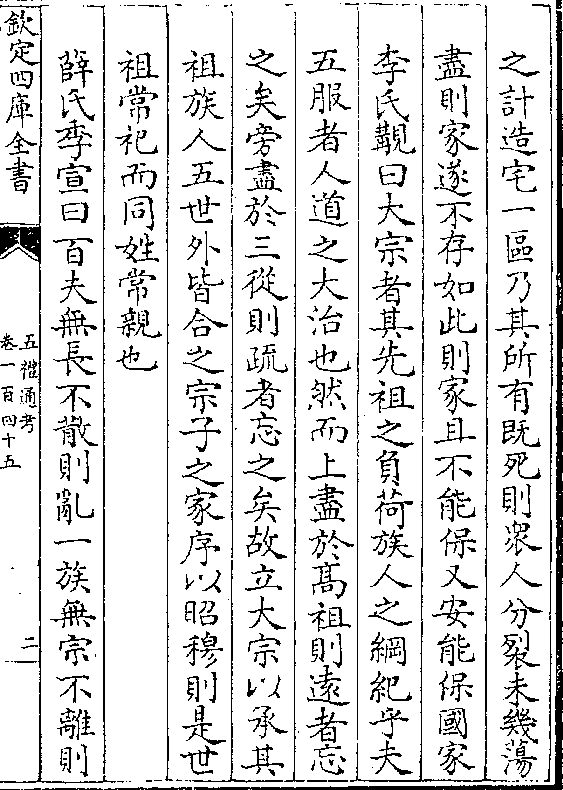 之計造宅一區乃其所有既死則衆人分裂未幾蕩
盡則家遂不存如此則家且不能保又安能保國家
李氏覯曰大宗者其先祖之負荷族人之綱紀乎夫
五服者人道之大治也然而上盡於髙祖則逺者忘
之矣旁盡於三從則疏者忘之矣故立大宗以承其
祖族人五世外皆合之宗子之家序以昭穆則是世
祖常祀而同姓常親也
薛氏季宣曰百夫無長不散則亂一族無宗不離則
欽定四庫全書
五禮通考
卷一百四十五
二